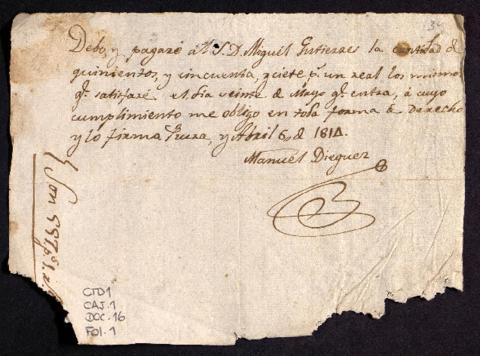 Debo, y pagaré á el S.D. Miguel Gutierres la cantidad de
quinientos, y cincuenta, y ciete p.s un real los mismos
q.e satisfaré el dia veinte de Mayo q.e entra, á cuyo
cumplimiento me obligo en toda forma de Derecho
y lo firma Piura, y Abril 6 de 1814.
Manuel Dieguez
Son 557 p.s 1 r.
CTD1
CAJ.1
DOC.16
FOl.1